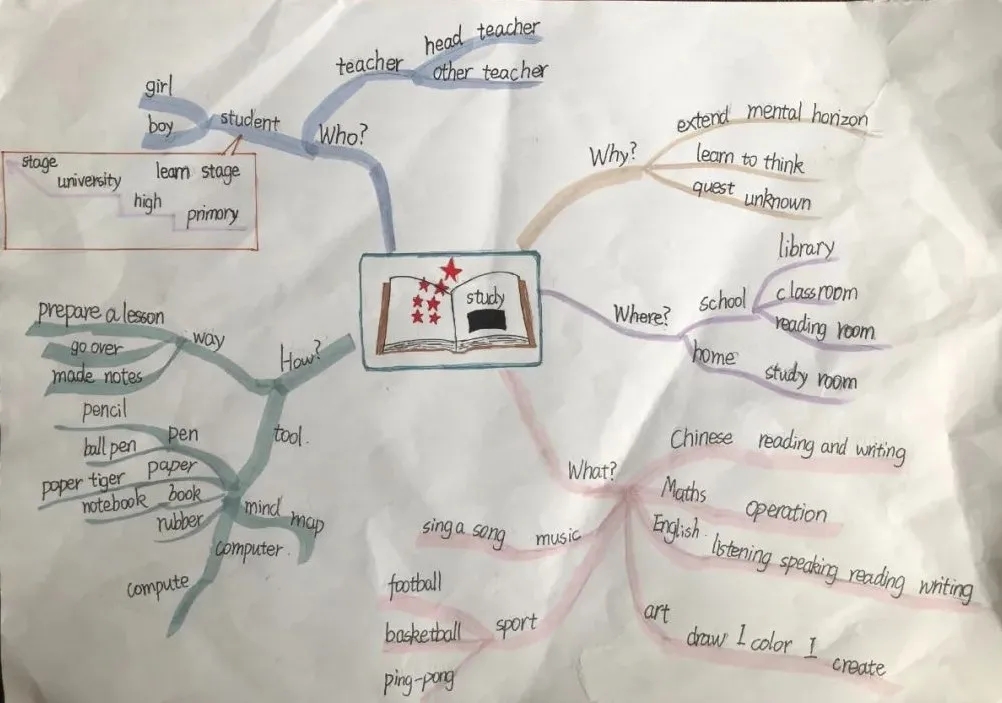 study
Who?
teacher
head teacher
other teacher
student
girl
boy
learn stage
stage
university
high
primary
Why?
extend mental horizon
learn to think
quest unknown
Where?
school
library
classroom
reading room
home
study room
What?
Chinese reading and writing
Maths operation
English listening speaking reading writing
art
draw I color I create
music
sing a song
sport
football
basketball
ping-pong
How?
way
prepare a lesson
go over
made notes
tool.
pen
pencil
ball pen
paper
paper tiger
book
notebook
rubber
mind map
computer.
compute